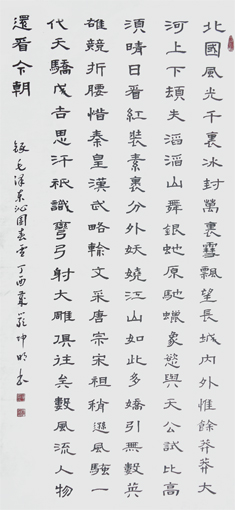 北國風光千裏冰封萬裏雪飄望長城內外惟餘莽莽大
河上下頓失滔滔山舞銀蛇原馳蠟象慾與天公試比高
須晴日看紅裝素裹分外妖嬈江山如此多嬌引無數英
雄競折腰惜秦皇漢武略輸文采唐宗宋祖稍遜風騷一
代天驕成吉思汗祇識彎弓射大雕俱往矣數風流人物
還看今朝
錄毛澤東沁園春雪丁酉坤明書